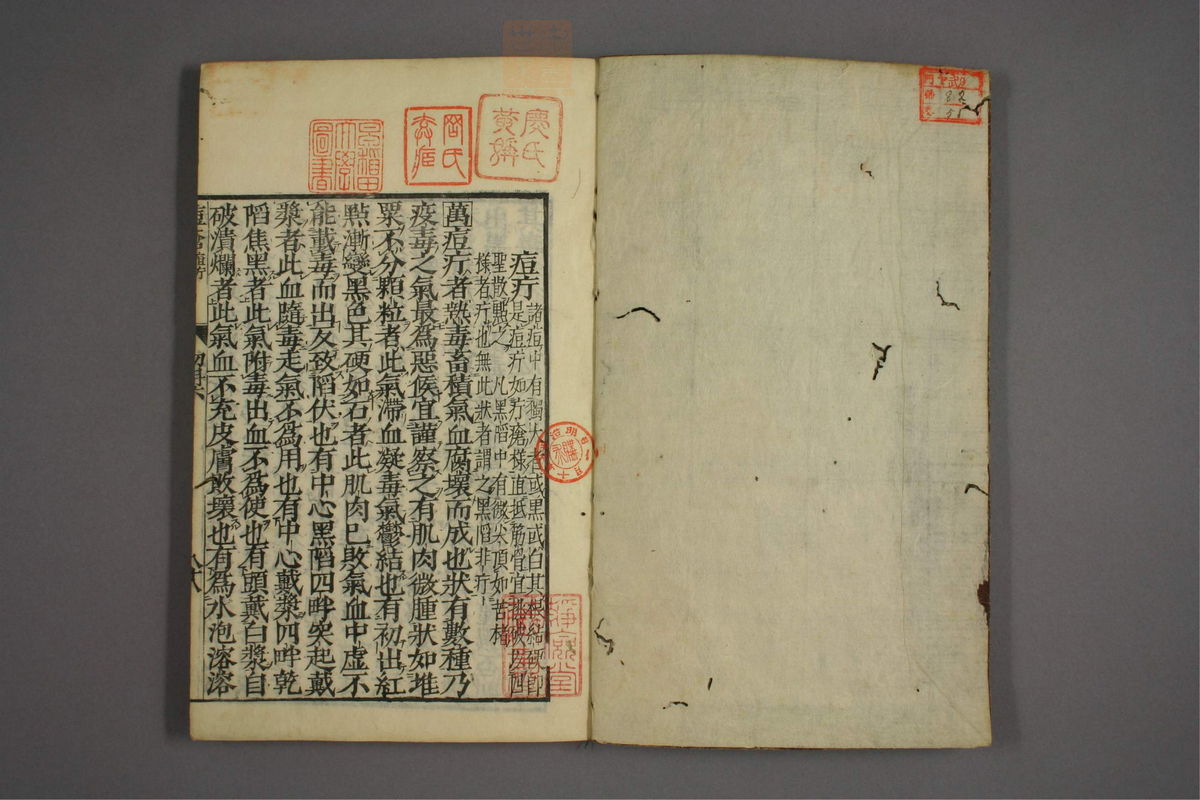 痘疔
諸痘中有獨大者或黑或白其根結硬即
是痘疔如疔瘡樣直抵筋骨宜挑破以四
聖散點之 凡黑陷中有微尖頂如苦楮
樣者疔也無此狀者謂之黑陷非疔
萬痘疔者熱毒畜積氣血腐壞而成也狀有數種乃
疫毒之氣最為惡候宜謹察之有肌肉微腫狀如堆
粟不分顆粒者此氣滯血凝毒氣鬱結也有初出紅
點漸變黑色其硬如石者此肌肉已敗氣血中虛不
能載毒而出反致陷伏也有中心黑陷四畔突起戴
漿者此血隨毒走氣不為用也有中心戴漿四畔乾
陷焦黑者此氣附毒出血不為使也有頭戴白漿自
破潰爛者此氣血不充皮膚敗壞也有為水泡溶溶
慶氏
早稻田
大學
圖書
靜俞堂
明治